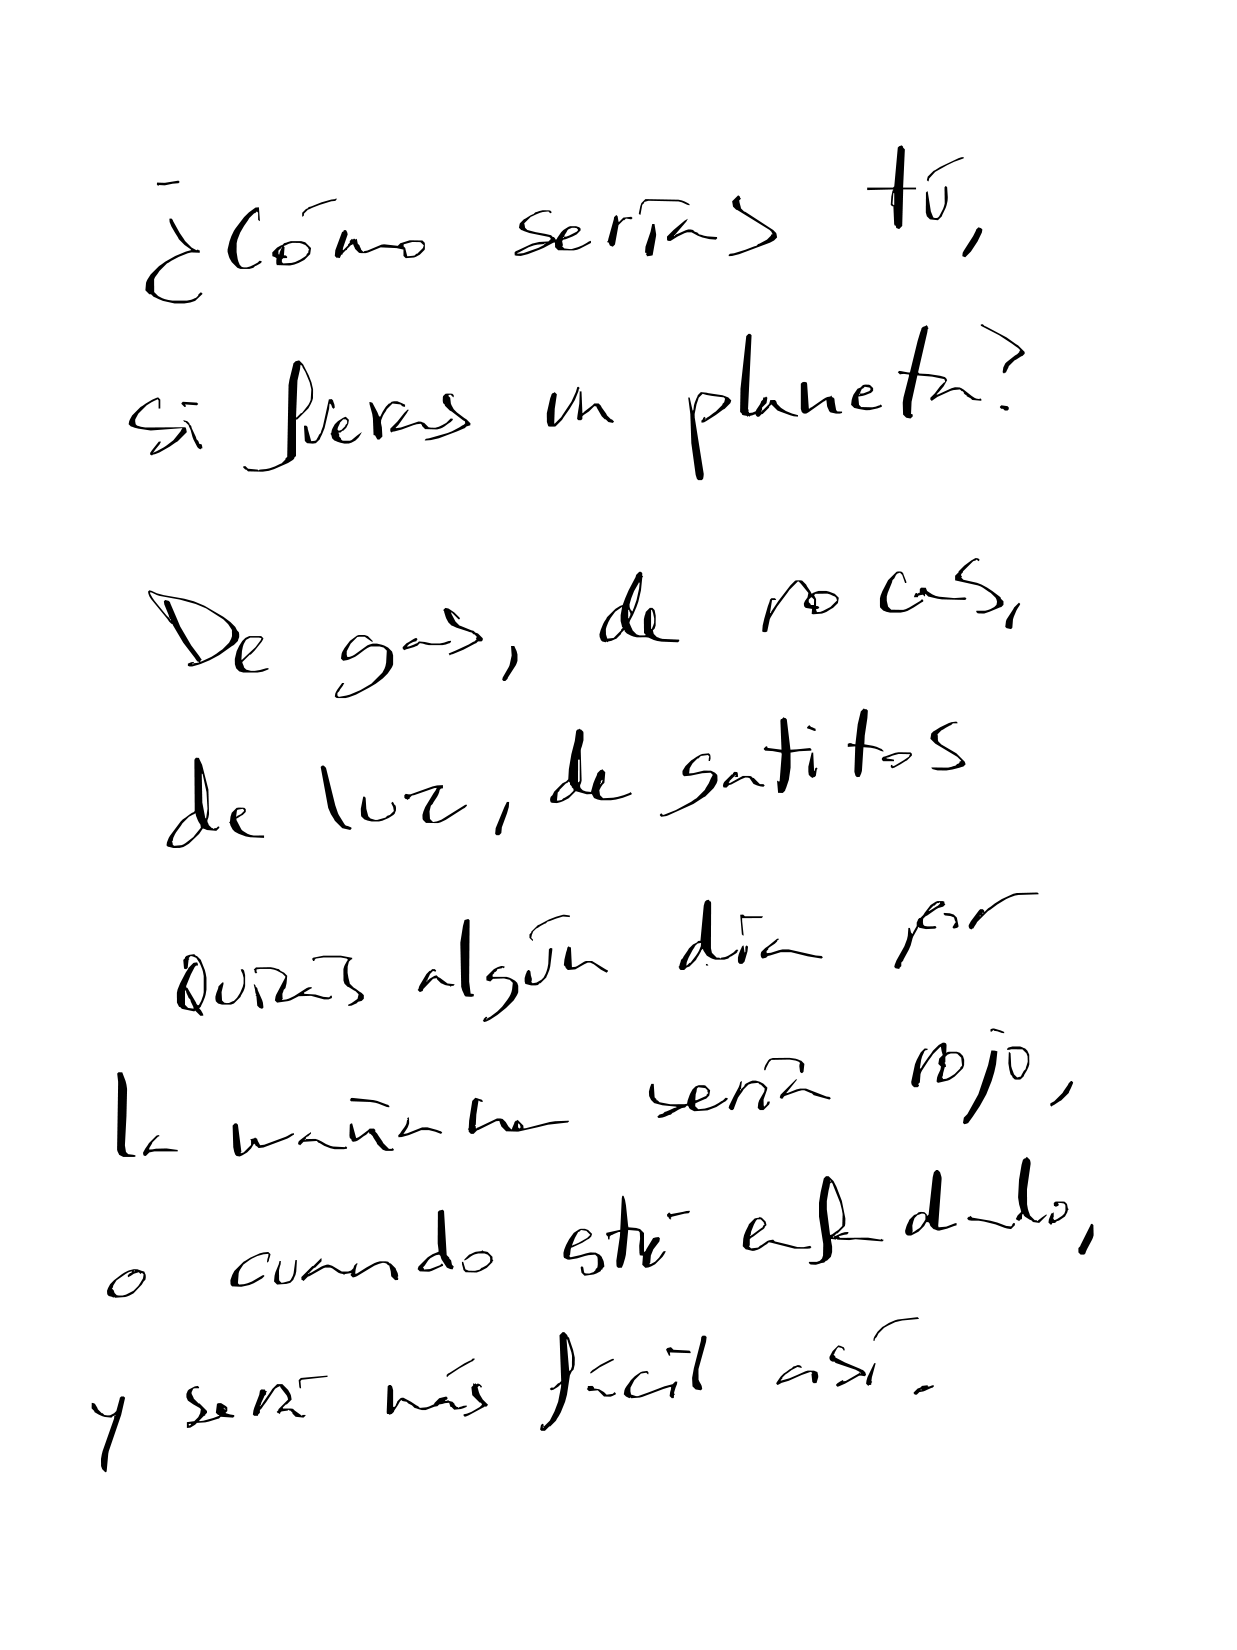 ¿Cómo serías tú,
si fueras un planeta?
De gas, de rocas,
de luz, de gatitos
Quizás algún día por
la mañana sería rojo,
o cuando esté enfadado,
y será más fácil así.